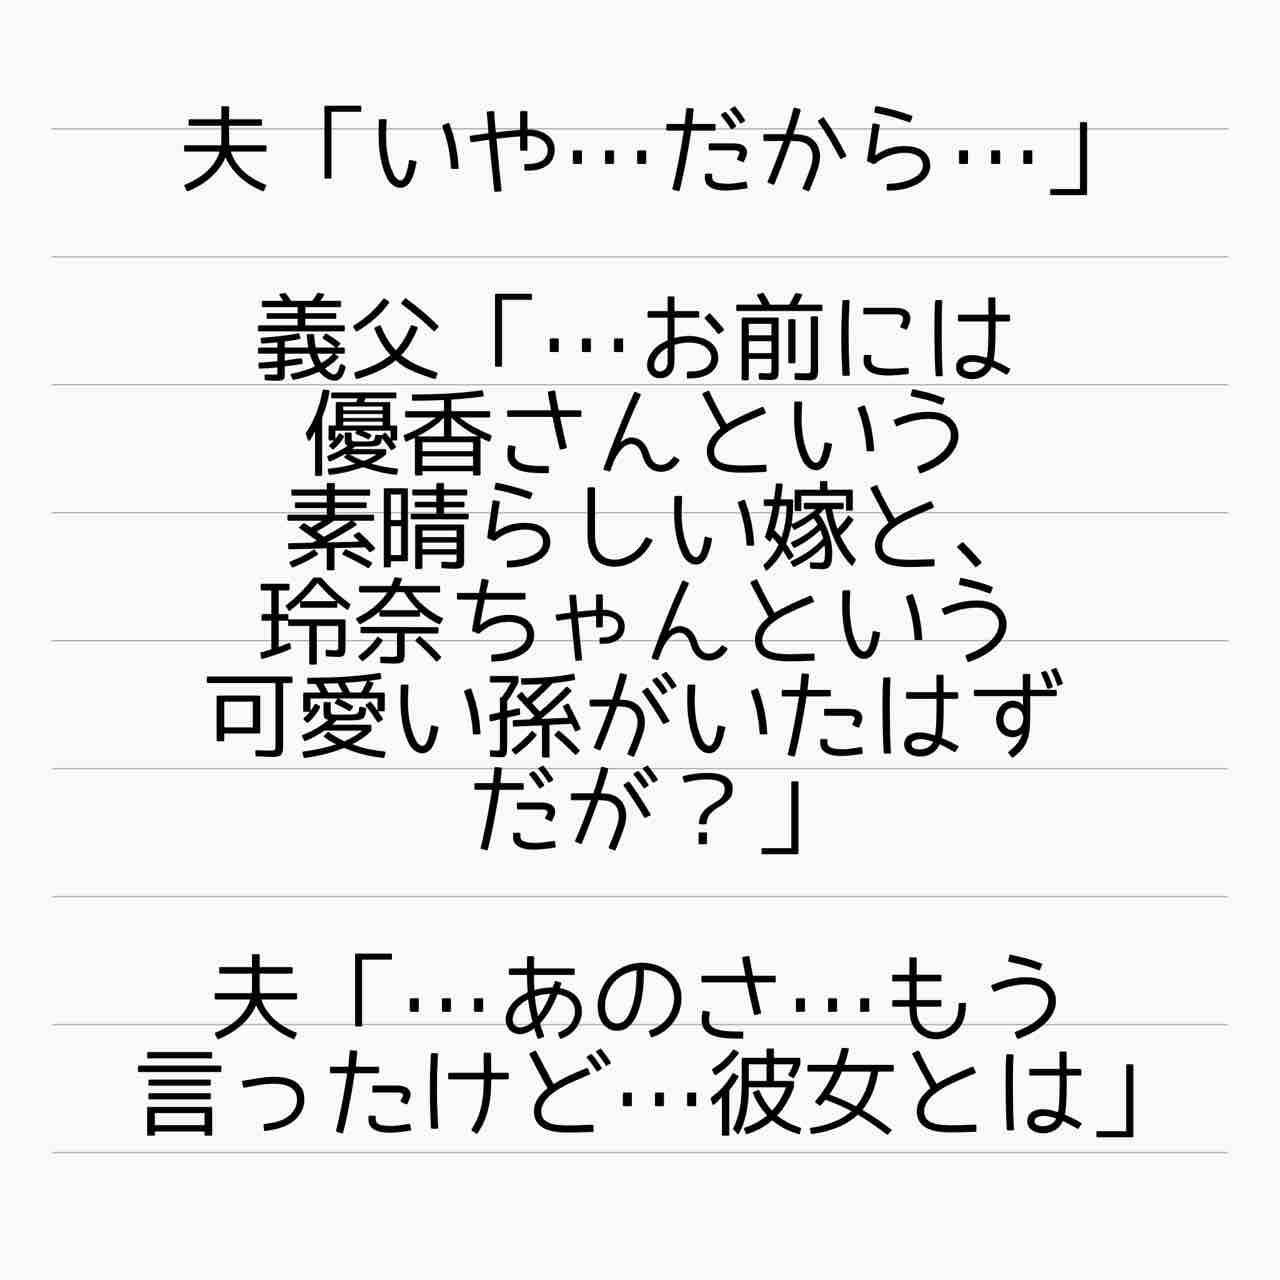 夫「いや…だから…」
義父「…お前には
優香さんという
素晴らしい嫁と、
玲奈ちゃんという
可愛い孫がいたはず
だが？」
夫「…あのさ…もう
言ったけど…彼女とは」